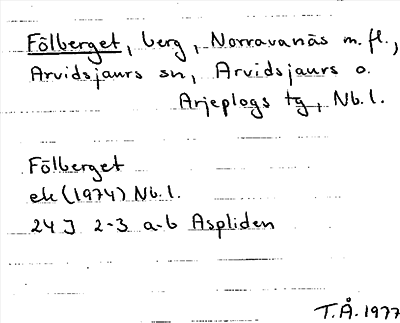 Fölberget, berg, Norravanäs m.fl.,
Arvidsjaurs sn, Arvidsjaurs o.
Arjeplogs tg, Nb.l.
Fölberget
ek (1974) Nb.l.
24 J 2-3 a-b Aspliden
T.Å. 1977